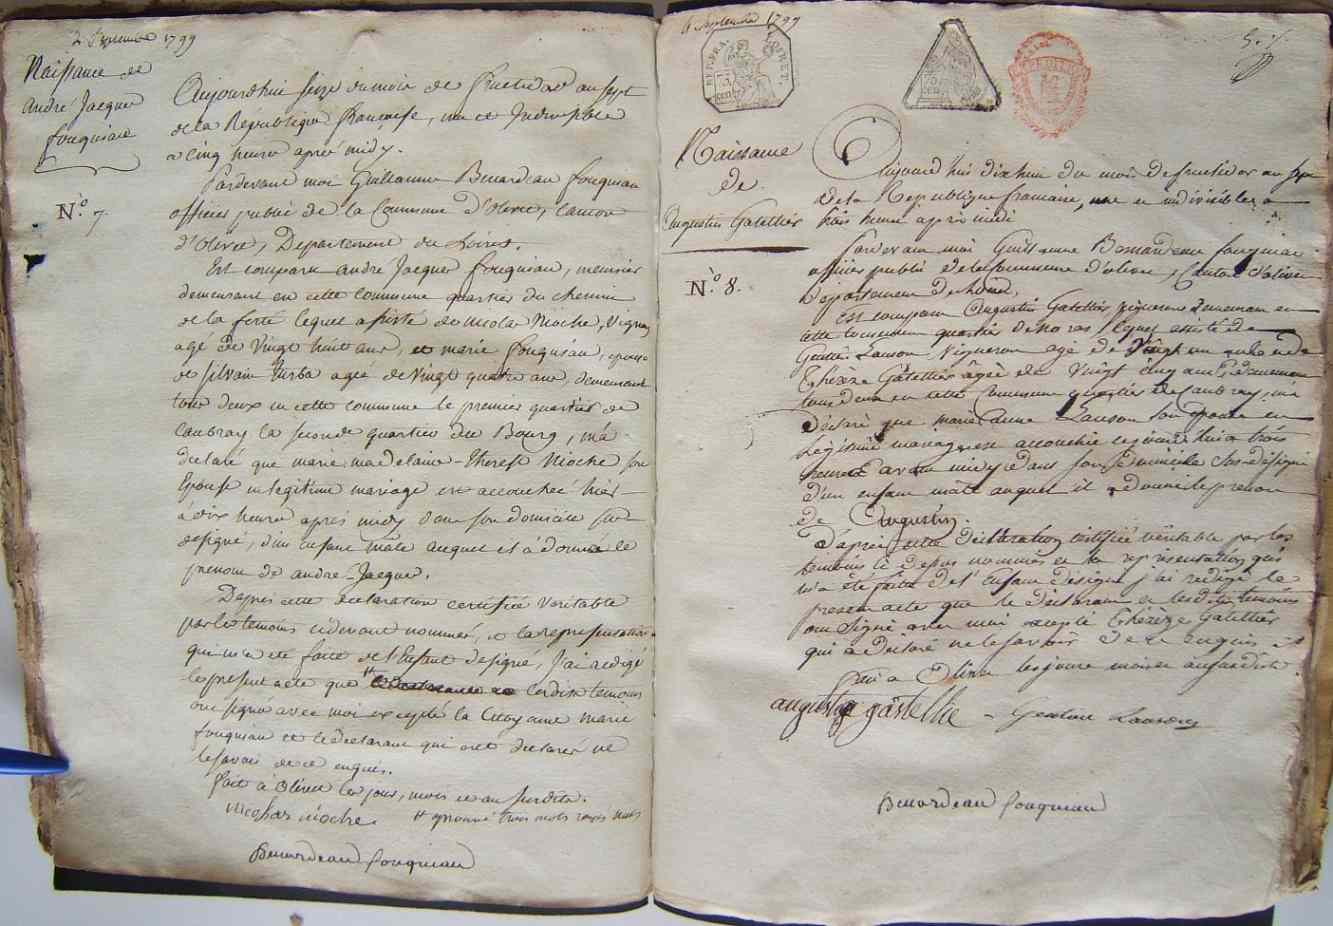 2 Septembre 1799
Naissance de
andré Jacque
fouquiau
N.º 7.
Aujourdhui seize du mois de fructidor an sept
de la Republique française, une et Indivisible
a cinq heure apres midy.
Pardevant moi Guillaume Benardeau fouquiau
officier public de la Commune d'olivet, canton
d'olivet, Departement du Loiret.
Est comparu andre Jacque fouquiau, menuisier
demeurant en cette commune quartier du chemin
de la ferté lequel assisté de nicolas Nioche, Vigneron
agé de Vingt huit ans, et marie fouquiau, epouse
de silvain Turba ageé de Vingt quatre ans, demeurant
tous deux en cette commune le premier quartier de
Caubray la seconde quartier du Bourg, m'a
declaré que marie madelaine-therese Nioche son
Epouse en legitime mariage est accouchée hier
à dix heure après midy dans son domicile sus
designé, d'un Enfant mâle auquel il à donné le
prenom de andre-Jacque.
Depres cette declaration certifiée Veritable
par les temoins cidevant nommés, et la representation
qui m'a eté faite de l'Enfant designé, J'ai redigé
le present acte que # lesdits temoins
ont signé avec moi excepté la Citoyenne marie
fouquiau et le declarant qui ont declarés ne
le savoir de ce enquis.
fait à Olivet les jour, mois et an susdits.
nicolas nioche # aprouvé trois mots rayés nuls
Benardeau fouquiau
4 Septembre 1799
REP. FRA.
5.
Naissance
de
Augustin Gatellier
N.º 8.
Aujourd'hui dix huit du mois de fructidor an sept
de la Republique française, une et indivisible a
trois heure après midi
Pardevant moi Guillaume Benardeau fouquiau
officier publié de la Commune d'olivet, Canton d'olivet
Departement du Loiret,
Est comparu Augustin Gatellier vigneron demeurant en
cette Commune quartier de lequel assisté de
Lanson, Vigneron agé de Vingt un ans et de
Thérèze Gatellier agée de Vingt cinq ans, demeurant
tous deux en cette Commune quartier de Caubray, m'a
déclaré que marie anne Lanson son épouse en
légitime mariage est accouchée cejourd'hui a trois
heures avant midy dans son domicile sus-désigné
d'un enfant mâle auquel il a donné le prenom
de Augustin.
D'après cette déclaration certifiée véritable par les
témoins ci-dessus nommés et la représentation qui
m'a été faite de l'Enfant désigné, j'ai rédigé le
present acte que le déclarant et lesdits témoins
ont signé avec moi excepté Thérèze Gatellier
qui a déclaré ne le savoir de ce enquis
fait a Olivet les jour mois et an susdits
augustin gastellie Lanson
Benardeau fouquiau